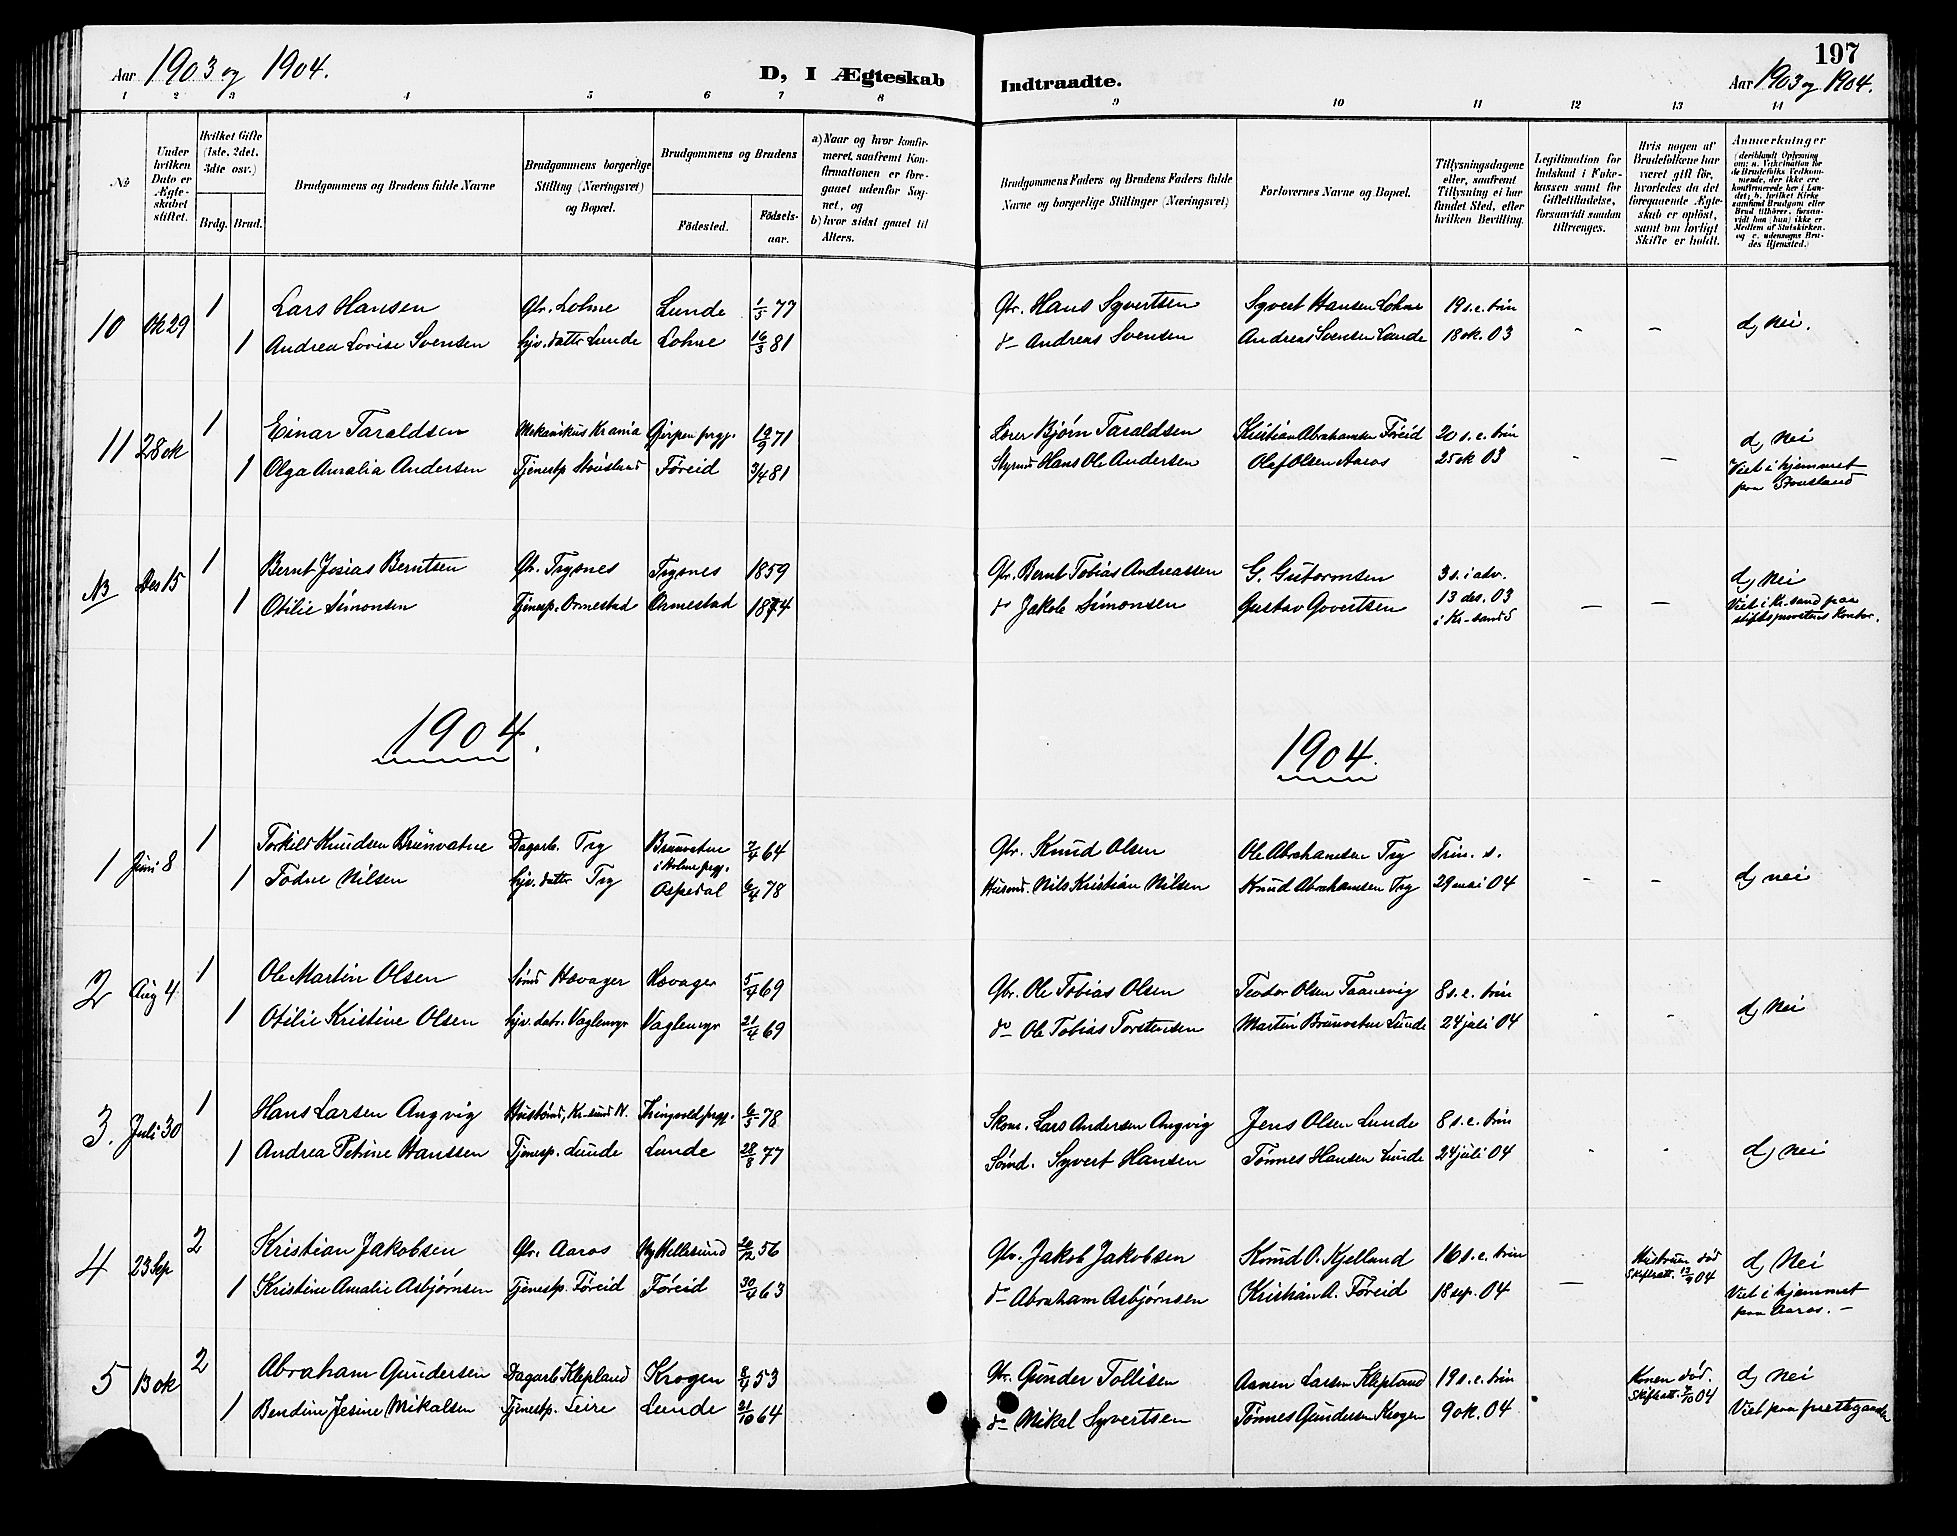 Aar 1903 og 1904.
D, I Ægteskab
Indtraadte.
197
Aar 1903 og 1904.
1 2 3 4 5 6 7 8 9 10 11 12 13 14
No
Under hvilken Dato er Ægteskabet stiftet.
Hvilket Gifte (1ste, 2det, 3die osv.)
Brdg. Brud.
Brudgommens og Brudens fulde Navne
Brudgommens borgerlige Stilling (Næringsvei) og Bopæl.
Brudgommens og Brudens
Födested.
Födselsaar.
a) Naar og hvor konfirmeret, saafremt Konfirmationen er foregaaet udenför Sognet, og
b) hvor sidst gaaet til Alters.
Brudgommens Faders og Brudens Faders fulde Navne og borgerlige Stillinger (Næringsvei)
Forlovernes Navne og Bopæl.
Tillysningsdagene eller, saafremt Tillysning ei har fundet Sted, efter hvilken Bevilling.
Legitimation for Indskud i Enkekassen samt for Giftetilladelse, forsaavidt saadan tiltrænges.
Hvis nogen af Brudefolkene har været gift för, hvorledes da det foregaaende Ægteskab er oplöst, samt om lovligt Skifte er holdt.
Anmærkninger
10 Ok 29 1 Lars Hansen Gbr. Lohne Lunde 1/5 77 Gbr. Hans Syvertsen Syvert Hansen Lohne 19 s. e. trin
1 Andrea Lovise Svensen hjv. datter Lunde Lohne 16/3 81 do Andreas Svensen Andreas Svensen Lunde 18 ok. 03 - - d, nei.
11 28 ok 1 Einar Taraldsen Mekanikus Krania Gjerpen prgj. 19/9 71 Lærer Bjørn Taraldsen Kristian Abrahamsen Føreid 20 s. e. trin d, nei
1 Olga Amalia Andersen Tjenestp Stousland Føreid 3/4 81 Styrmd Hans Ole Andersen Olaf Olsen Aaros 25 ok 03 - - Viet i hjemmet
paa Stousland
Des 15 1 Bernt Josias Berntsen Gbr. Trysnes Trysnes 1859 Gbr. Bernt Tobias Andreassen G. Guttormsen 3 s. i adv. d, nei
1 Otilie Simonsen Tjenesp. Ormestad Ormestad 1874 do Jakob Simonsen Gustav Govertsen 13 des. 03 - - Viet i Kr.sand paa
i Kr-sand stiftsprovstens Kontor.
1904. 1904.
1 Juni 8 1 Torkild Knudsen Brunvatne Dagarb. Try Brunvatne 7/4 64 Gbr. Knud Olsen Ole Abrahamsen Try Trin. s.
i Holme prgj.
1 Todne Nilsen hjv. datter Try Ospedal 6/4 78 Husmd. Nils Kristian Nilsen Knud Abrahamsen Try 29 mai 04 - - d, nei
2 Aug 4 1 Ole Martin Olsen Sømd Høvager Høvager 5/4 69 Gbr. Ole Tobias Olsen Teodor Olsen Taanevig 8 s. e. trin
1 Otilie Kristine Olsen hjv. datr. Vaglemyr Vaglemyr 21/4 69 do Ole Tobias Torstensen Martin Brunvatne Lunde 24 juli 04 - - d, nei
3. Juli 30 1 Hans Larsen Angvig Kr-sund N. Tingvold prgj. 6/5 78 Skom. Lars Andersen Angvig Jens Olsen Lunde 8 s. e. trin
1 Andrea Petrine Hanssen Tjenesp. Lunde Lunde 28/8 77 Sømd. Syvert Hansen Tønnes Hansen Lunde 24 juli 04 - - d, nei
4 23 Sep 2 Kristian Jakobsen Gbr. Aaros Ny Hellesund 26/12 56 Gbr. Jakob Jakobsen Knud O. Kjelland 16 s. e. trin Hustruen død d, nei
1 Kristine Amalie Asbjørnsen Tjenestp. Føreid Føreid 30/4 63 do Abraham Asbjørnsen Kristian A. Føreid 18 sep. 04 - Skifteatt. 12/9 04 Viet i hjemmet
paa Aaros. -
5 13 ok 2 Abraham Gundersen Dagarb Klepland Krogen 8/4 53 Gbr. Gunder Tollisen Aanen Larsen Klepland 19 s. e. trin Konen død. d, nei
1 Bendine Jesine Mikalsen Tjenestp. Leire Lunde 21/10 64 do Mikal Syvertsen Tønnes Gundersen Krogen 9 ok. 04 Skifteatt. 7/10 04 Viet paa prestegaarden